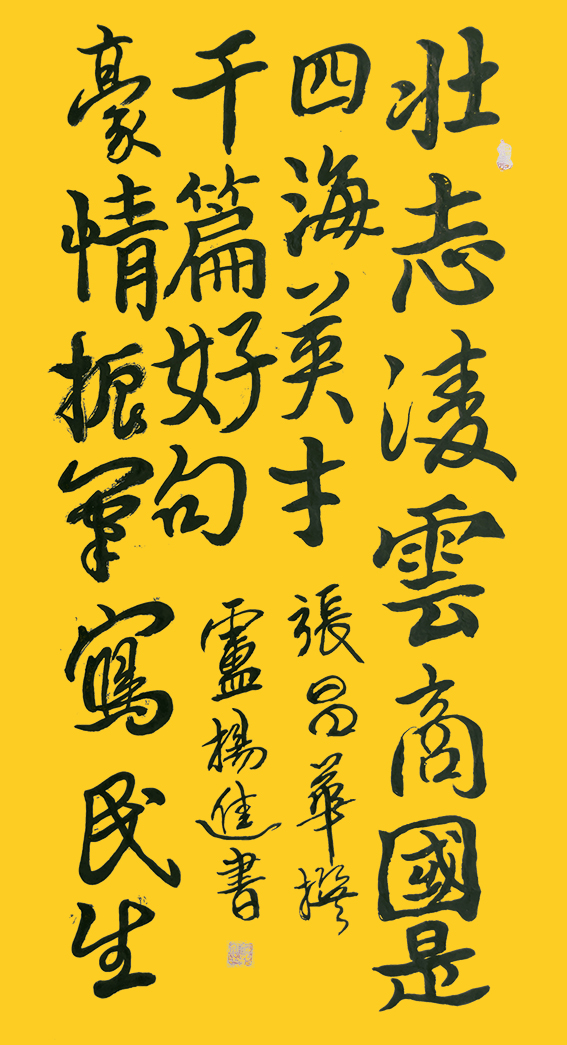 壮志凌雲商國是
四海英才
張昌華撰
豪情振筆寫民生
千篇好句
盧楊進書